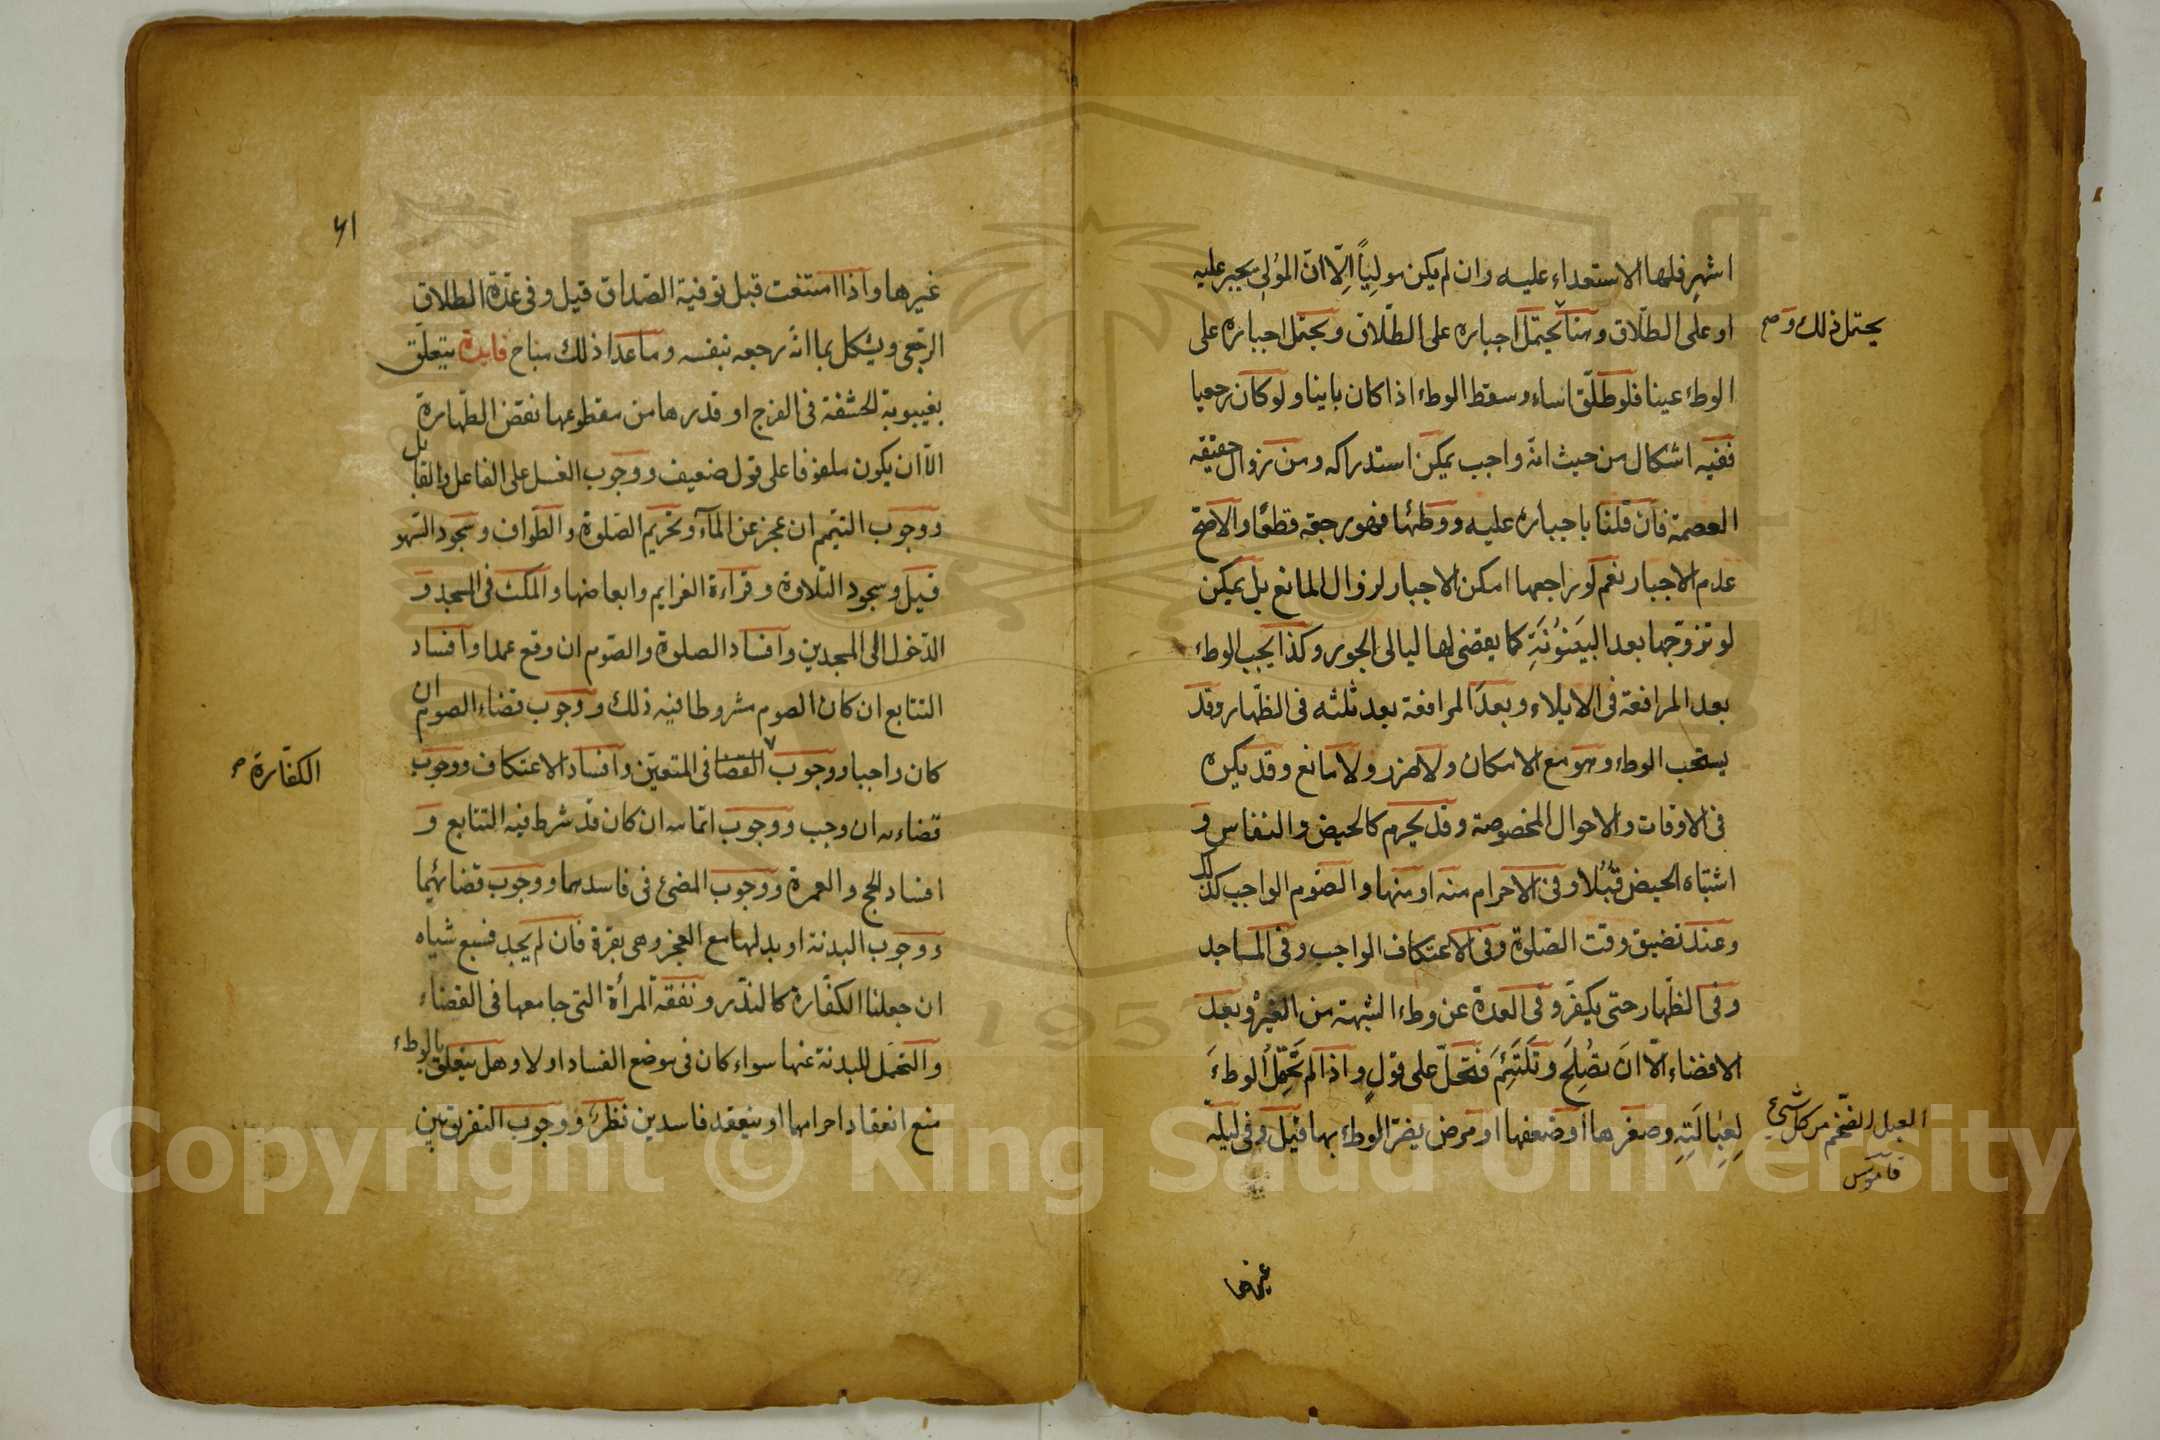 اشهر فلها الاستعداء عليه وان لم يكن موليًا اِلّا انّ المولى يجبر عليه
او على الطلاق وهنا يحتمل اجباره على الطّلاق ويحتمل اجباره على
يحتمل ذلك و صح
الوطء عينا فلو طلّق اساء وسقط الوطء اذا كان باينا ولو كان رجعيا
ففيه اشكال من حيث انّه واجب يمكن استدراكه ومن زوال حقيقه
العصمة فان قلنا باجباره عليه ووطئها فهو رجعة قطعًا والاصح
عدم الاجبار نعم لو راجعها امكن الاجبار لزوال المانع بل يمكن
لو تزوّجها بعد البَيْنُونَةِ كما يقضى لها ليالى الجور وكذا يجب الوطء
بعد المرافعة فى الايلاء وبعد المرافعة بعد ثلثه فى الظّهار وقد
يستحب الوطء وهو مع الامكان ولا ضرر ولا مانع وقد يكره
فى الاوقات والاحوال المخصوصة وقد يحرم كالحيض والنفاس و
اشتباه الحيض قُبُلا وفى الاحرام منه او منها والصّوم الواجب كذلك
وعند تضيق وقت الصّلوة وفى الاعتكاف الواجب وفى المساجد
وفى الظّهار حتى يكفّر وفى العدة عن وطء الشبهة من الغير وبعد
الافضاء الّا ان يَصْلَحَ وتَلْتَئِمَ فتحلّ على قولٍ واذا لم تحمّل الوطءَ
لِعِبالَتِهِ وصغرها او ضعفها او مرض يضرّ الوطء بها قيل وفى ليلة
العبل الضّخم من كل شئ
قاموس
غيرها
٦١
غيرها واذا امتنعت قبل توفية الصّداق قيل وفى عدّة الطلاق
الرّجعى ويشكل بما انّه رجعه بنفسه وما عدا ذلك مباح فايدة يتعلّق
بغيبوبة الحشفة فى الفرج او قدرها من مقطوعها نقض الطّهارة
الّا ان يكون ملفوفا على قول ضعيف ووجوب الغسل على الفاعل والقابل
ووجوب التيمم ان عجز عن المآء وتحريم الصّلوة والطّواف وسجود السّهو
قيل وسجود التّلاوة وقراءة العزايم وابعاضها والمكث فى المسجد و
الدّخول الى المسجدين وافساد الصلوة والصّوم ان وقع عمدا وافساد
التتابع ان كان الصوم مشروطا فيه ذلك ووجوب قضاء الصوم ان
كان واجبا ووجوب القضا فى المتعيّن وافساد الاعتكاف ووجوب
الكفّارة صح
قضاءه ان وجب ووجوب اتمامه ان كان قد شرط فيه التتابع و
افساد الحج والعمرة ووجوب المضىّ فى فاسدهما ووجوب قضائهما
ووجوب البدنة او بدلها مع العجز وهى بقرة فان لم يجد فسبع شياه
ان جعلنا الكفّارة كالنذر ونفقة المرأة التى جامعها فى القضاء
والتحمّل للبدنة عنها سواء كان فى موضع الفساد او لا وهل يتعلق بالوطء
منع انعقاد احرامهما او ينعقد فاسدين نظر ووجوب التفريق بين
Copyright © King Saud University
1957